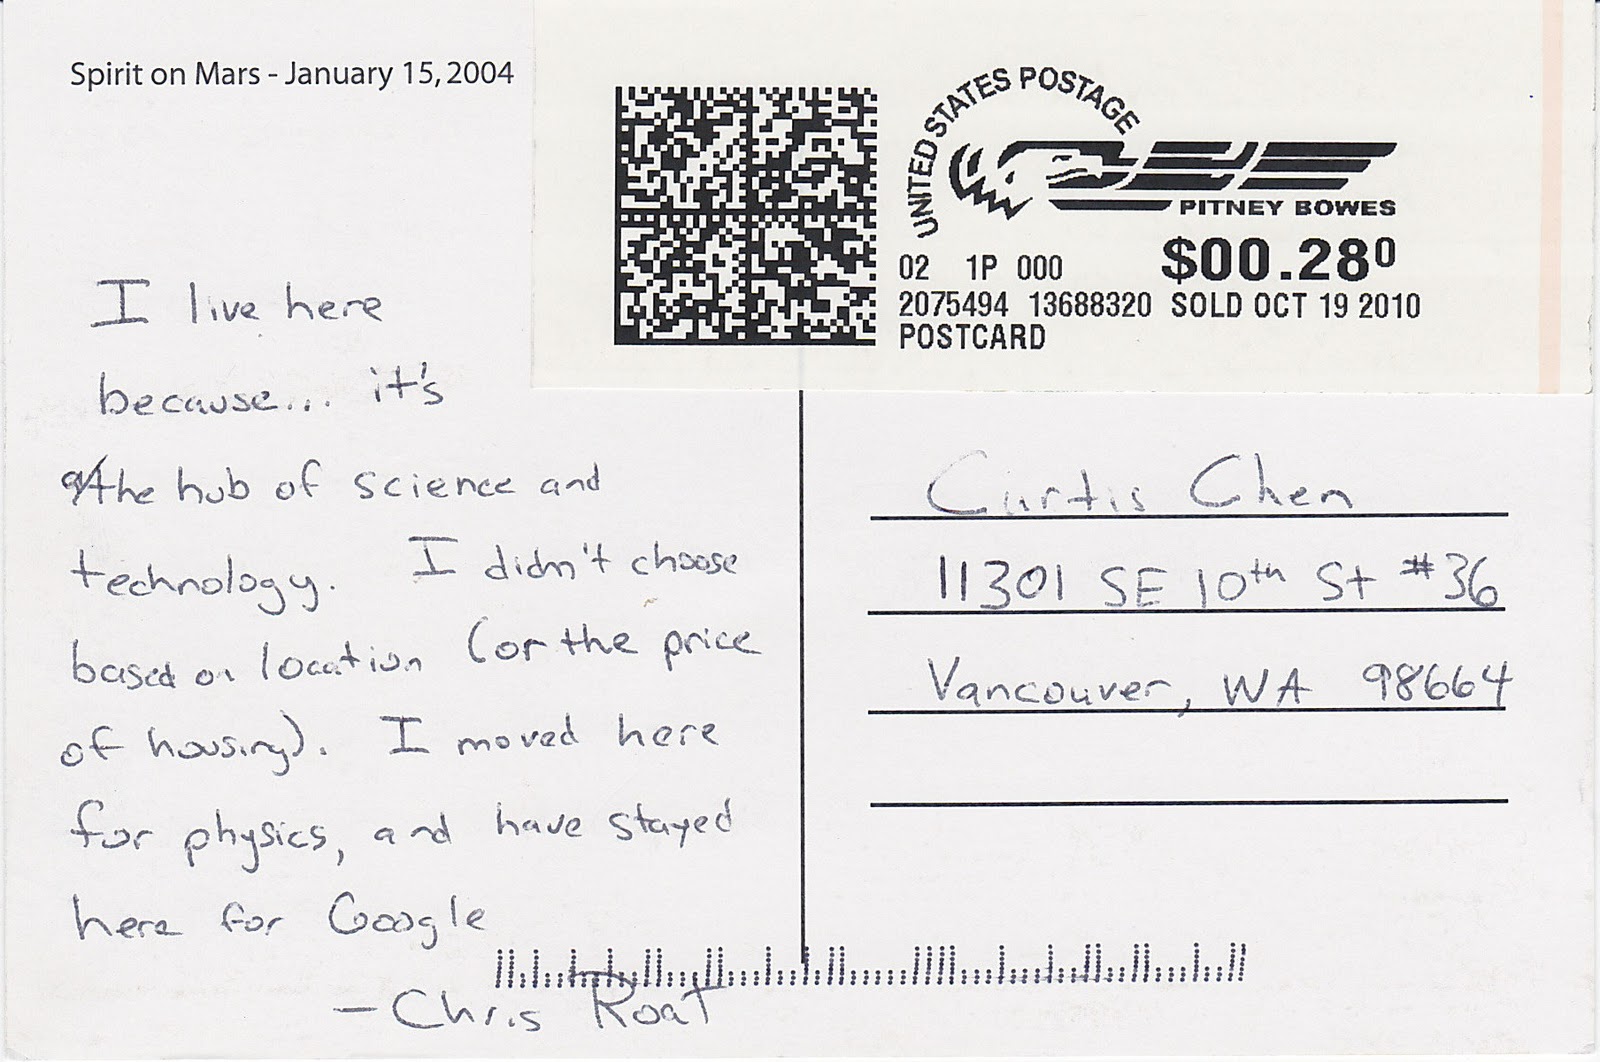 Spirit on Mars - January 15, 2004
UNITED STATES POSTAGE
PITNEY BOWES
02 1P 000
$00.28⁰
2075494 13688320 SOLD OCT 19 2010
POSTCARD
I live here
because... it's
the hub of science and
technology. I didn't choose
based on location (or the price
of housing). I moved here
for physics, and have stayed
here for Google
- Chris Roat
Curtis Chen
11301 SE 10th St #36
Vancouver, WA 98664